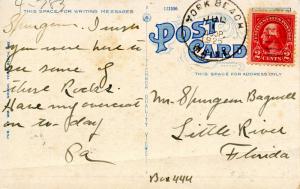 THIS SPACE FOR WRITING MESSAGES
Spurgeon. I wish
you were here to
see some of
these Rocks.
Have my
on to-day
Pa
113596
YORK BEACH
POST CARD
THIS SPACE FOR ADDRESS ONLY
2 CENTS 2
Mr. Spurgeon Bagwell
Little River
Florida
Box 444